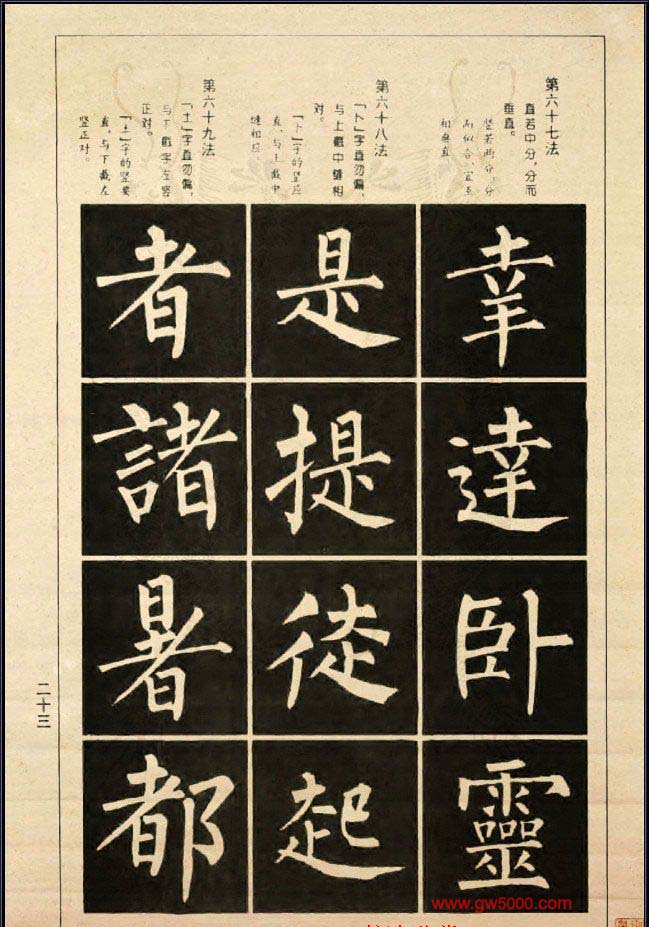 第六十七法
直若中分，分而
垂直。
竖若两分，分
而似合，宜至
相垂直
幸
達
卧
靈
第六十八法
「卜」字直勿偏，
与上截中缝相
对。
「卜」字的竖应
直，与上截中
缝相应
是
提
徒
起
第六十九法
「土」字直勿偏，
与下截字左竖
正对。
「土」字的竖要
直，与下截左
竖正对。
者
諸
暑
都
二十三
www.gw5000.com